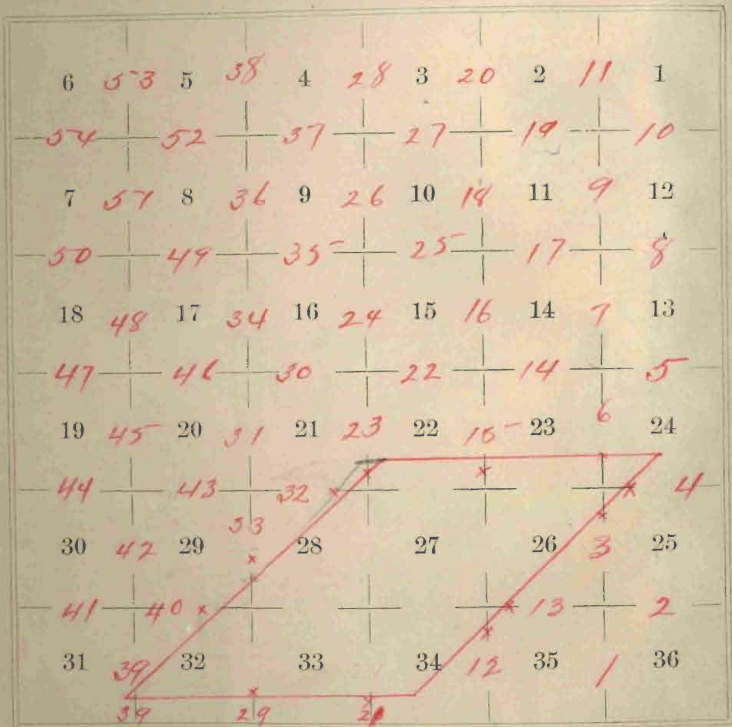 6 53 5 38 4 28 3 20 2 11 1
54 52 37 27 19 10
7 51 8 36 9 26 10 18 11 9 12
50 49 35 25 17 8
18 48 17 34 16 24 15 16 14 7 13
47 46 30 22 14 5
6
19 45 20 31 21 23 22 15 23 24
44 43 32 4
33
30 42 29 28 27 26 3 25
41 40 13 2
31 39 32 33 34 12 35 1 36
39 29 21